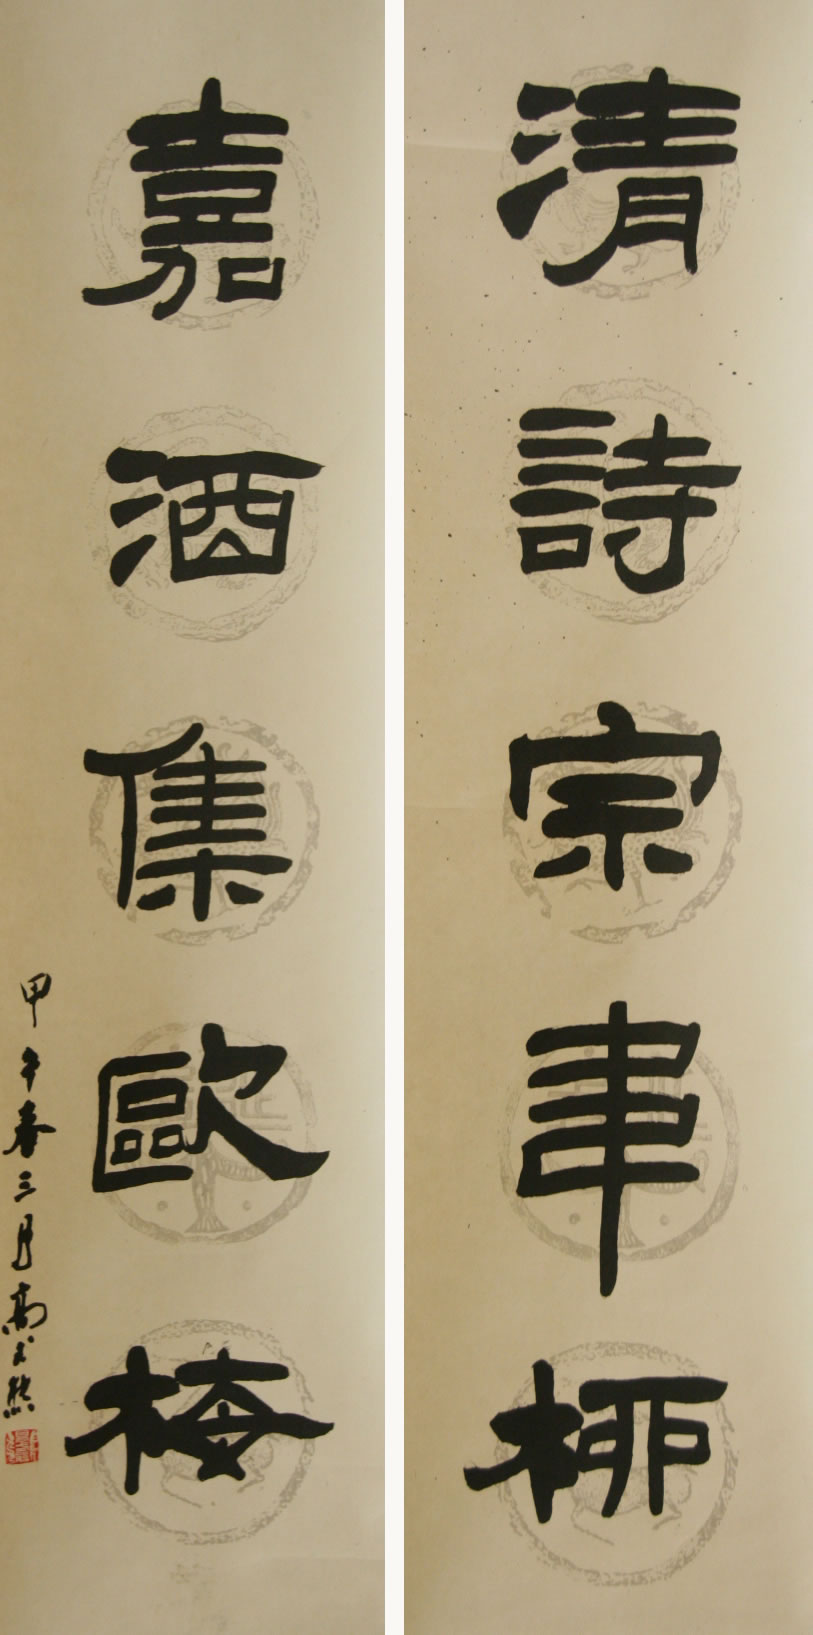 清詩宗韋柳
嘉酒集歐梅
甲午春三月高式熊